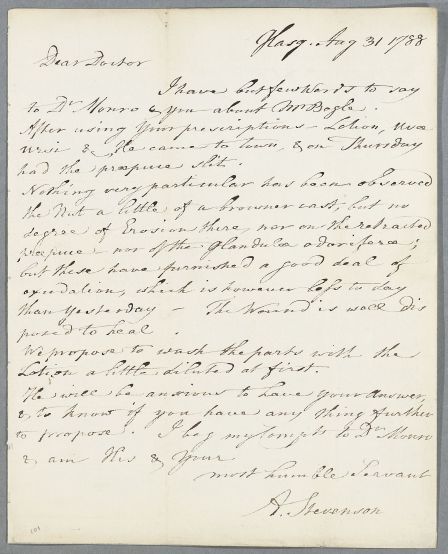 Glasg. Aug 31 1788
Dear Doctor
I have but few words to say
to Dr Monro & you about Mr Bogle.
After using your prescriptions - Lotion, uvæ
ursi & he came to town, & on Thursday
had the præpuce slit.
Nothing very particular has been observed
the Nut a little of a browner cast; but no
degree of Erosion there, nor on the retracted
præpuce - nor of the Glandulæ odoriferæ;
but these have furnished a good deal of
exudation, which is however less to day
than yesterday - The Wound is well dis
posed to heal.
We propose to wash the parts with the
Lotion a little diluted at first.
He will be anxious to have your answer,
& to know if you have any thing further
to propose. I beg my Compts to Dr Monro
& am His & your
most humble Servant
A. Stevenson